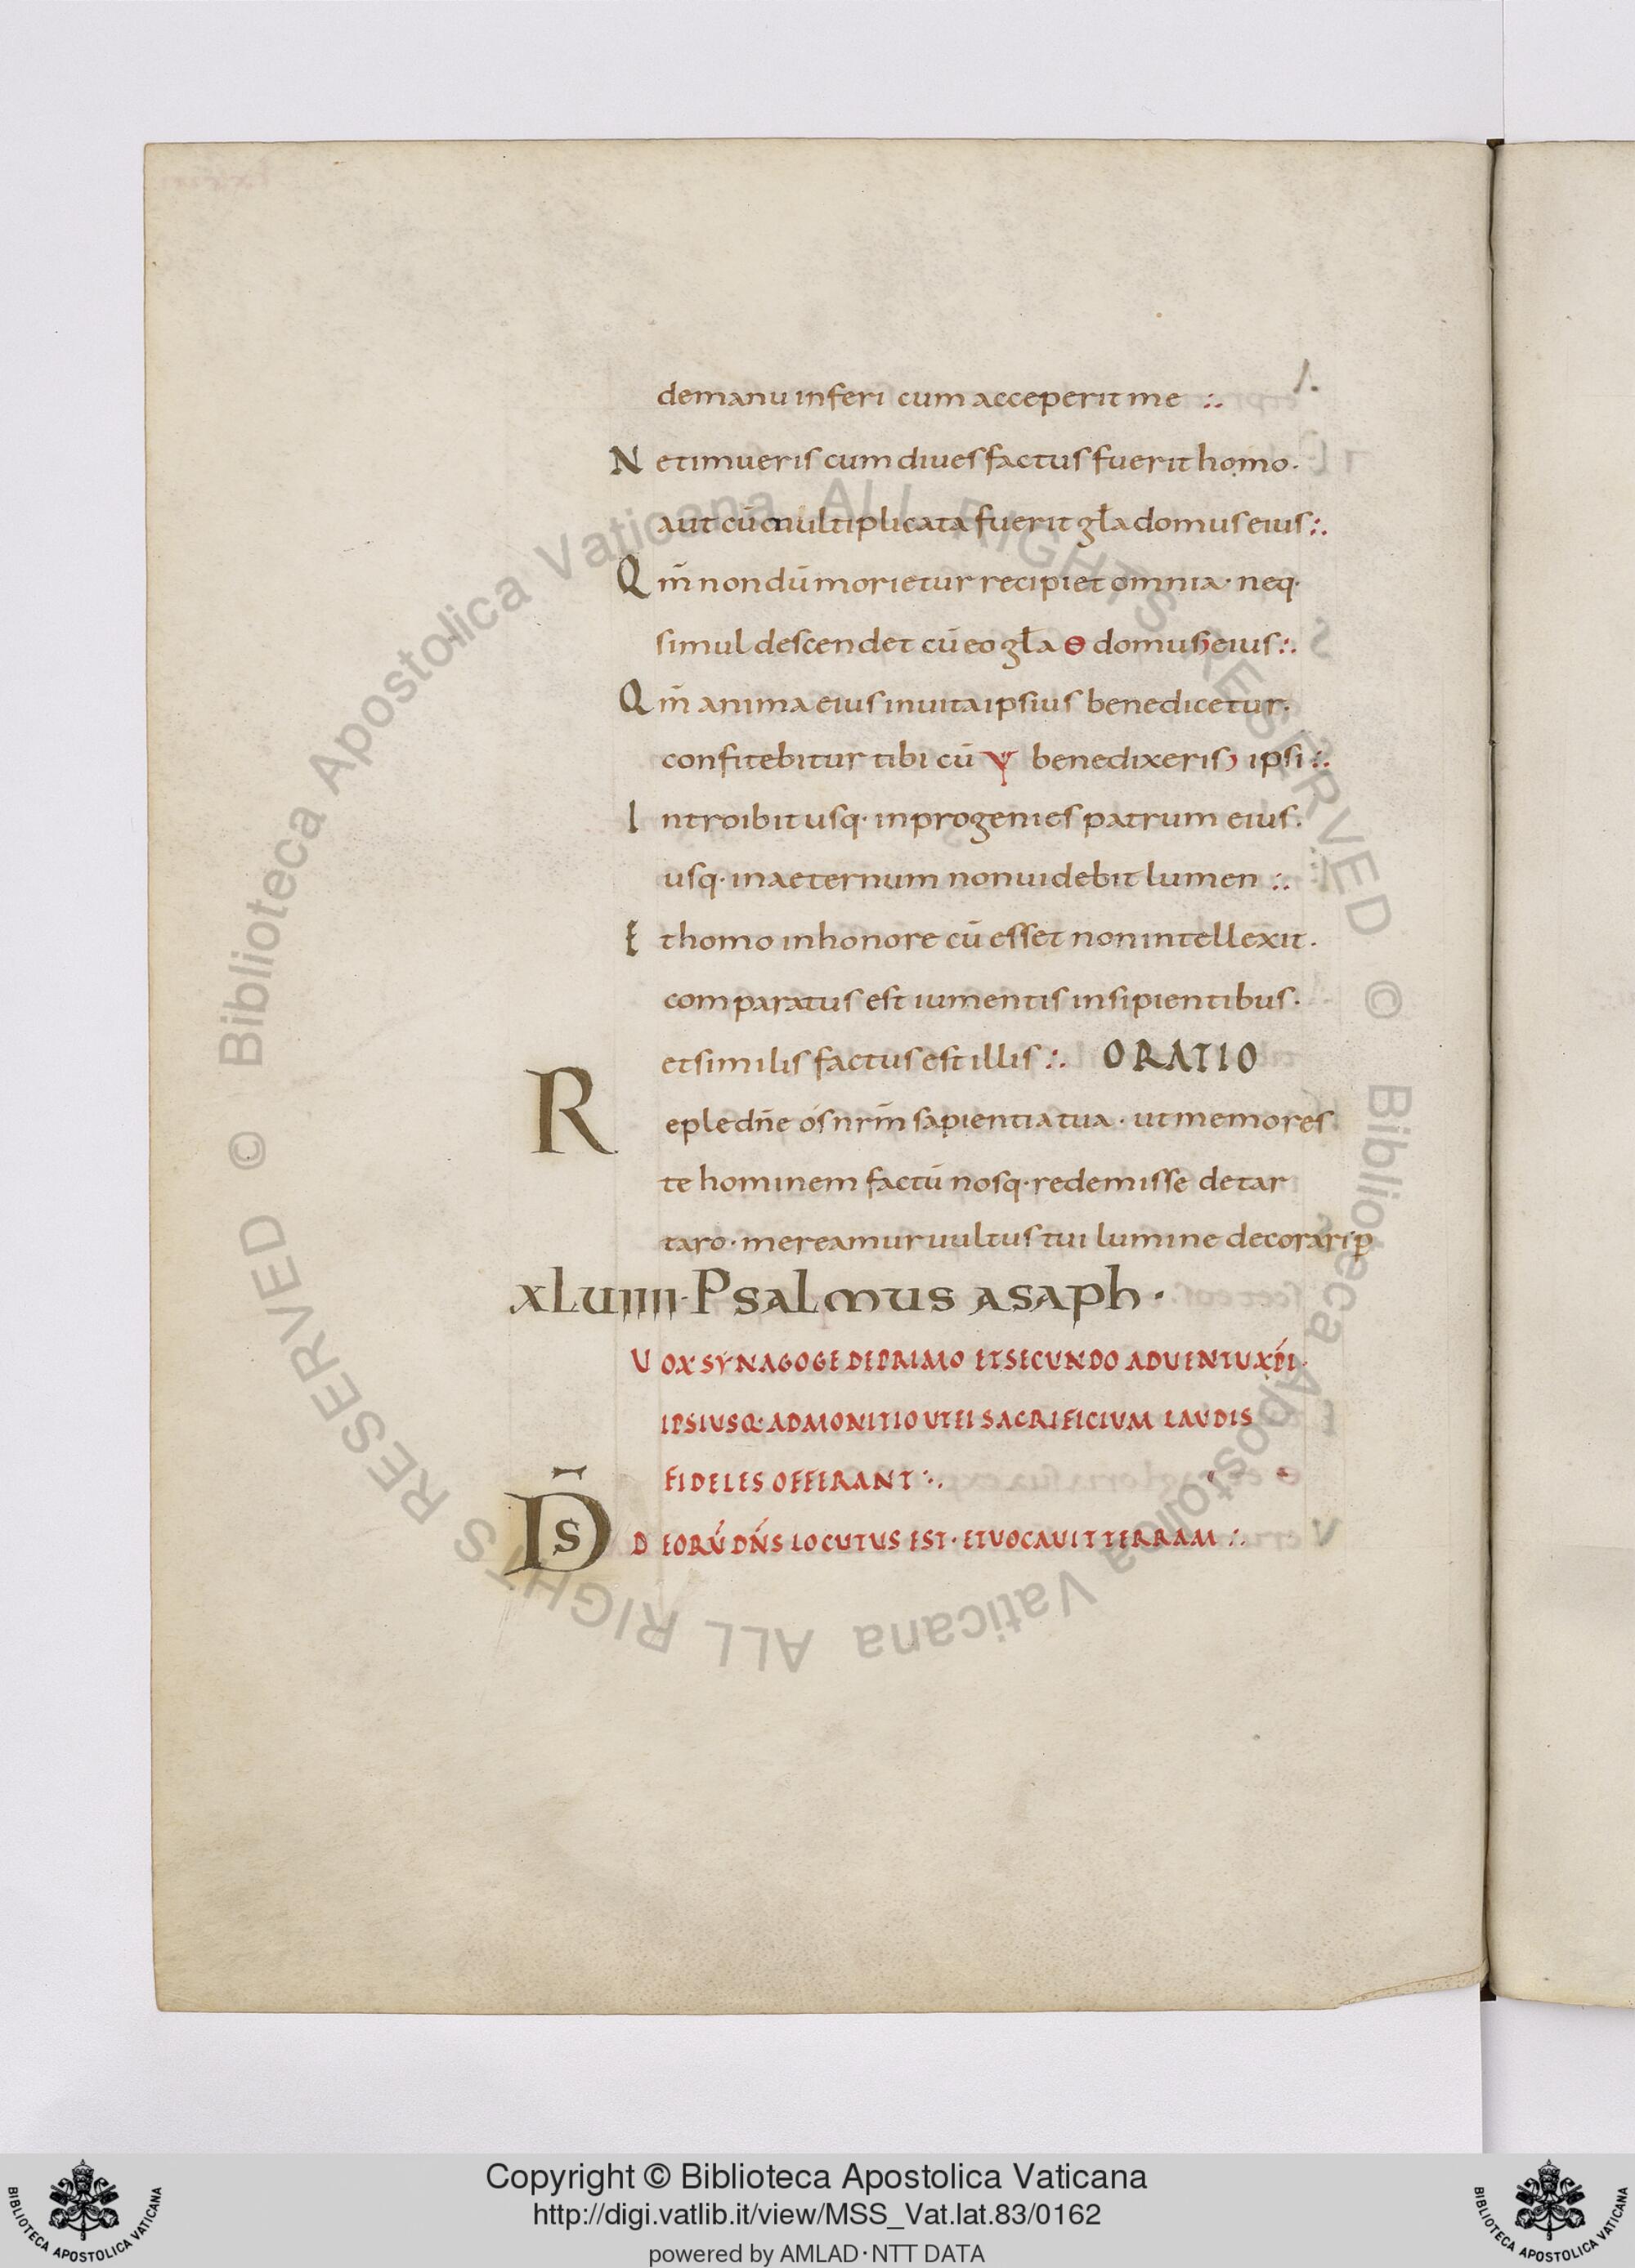 demanu inferi cum acceperit me :.
Ne timueris cum diues factus fuerit homo.
aut cū multiplicata fuerit gła domus eius :.
Qm̄ non dū morietur recipiet omnia· neq·
simul descendet cū eo gła ɵ domus eius :.
Qm̄ anima eius inuita ipsius benedicetur.
confitebitur tibi cū ѱ benedixeris ipsi :.
Introibit usq· in progenies patrum eius.
usq· in aeternum non uidebit lumen :.
Et homo in honore cū esset non intellexit.
comparatus est iumentis insipientibus.
et similis factus est illis :. ORATIO
Reple dn̄e ós nrm̄ sapientia tua· ut memores
te hominem factū nosq· redemisse de tar
taro· mereamur uultus tui lumine decorari p̄
xLuIIII· Psalmus asaph·
UOX SYNAGOGE DE PRIMO ET SECUNDO ADUENTU XP̄I·
IPSIUSQ· ADMONITIO UT EI SACRIFICIUM LAUDIS
FIDELES OFFERANT :.
D̄s DEORŪ DN̄S LOCUTUS EST· ET UOCAUIT TERRAM :.
© Biblioteca Apostolica Vaticana ALL RIGHTS RESERVED © Biblioteca Apostolica Vaticana ALL RIGHTS RESERVED
Copyright © Biblioteca Apostolica Vaticana
http://digi.vatlib.it/view/MSS_Vat.lat.83/0162
powered by AMLAD·NTT DATA
BIBLIOTECA APOSTOLICA VATICANA
BIBLIOTECA APOSTOLICA VATICANA